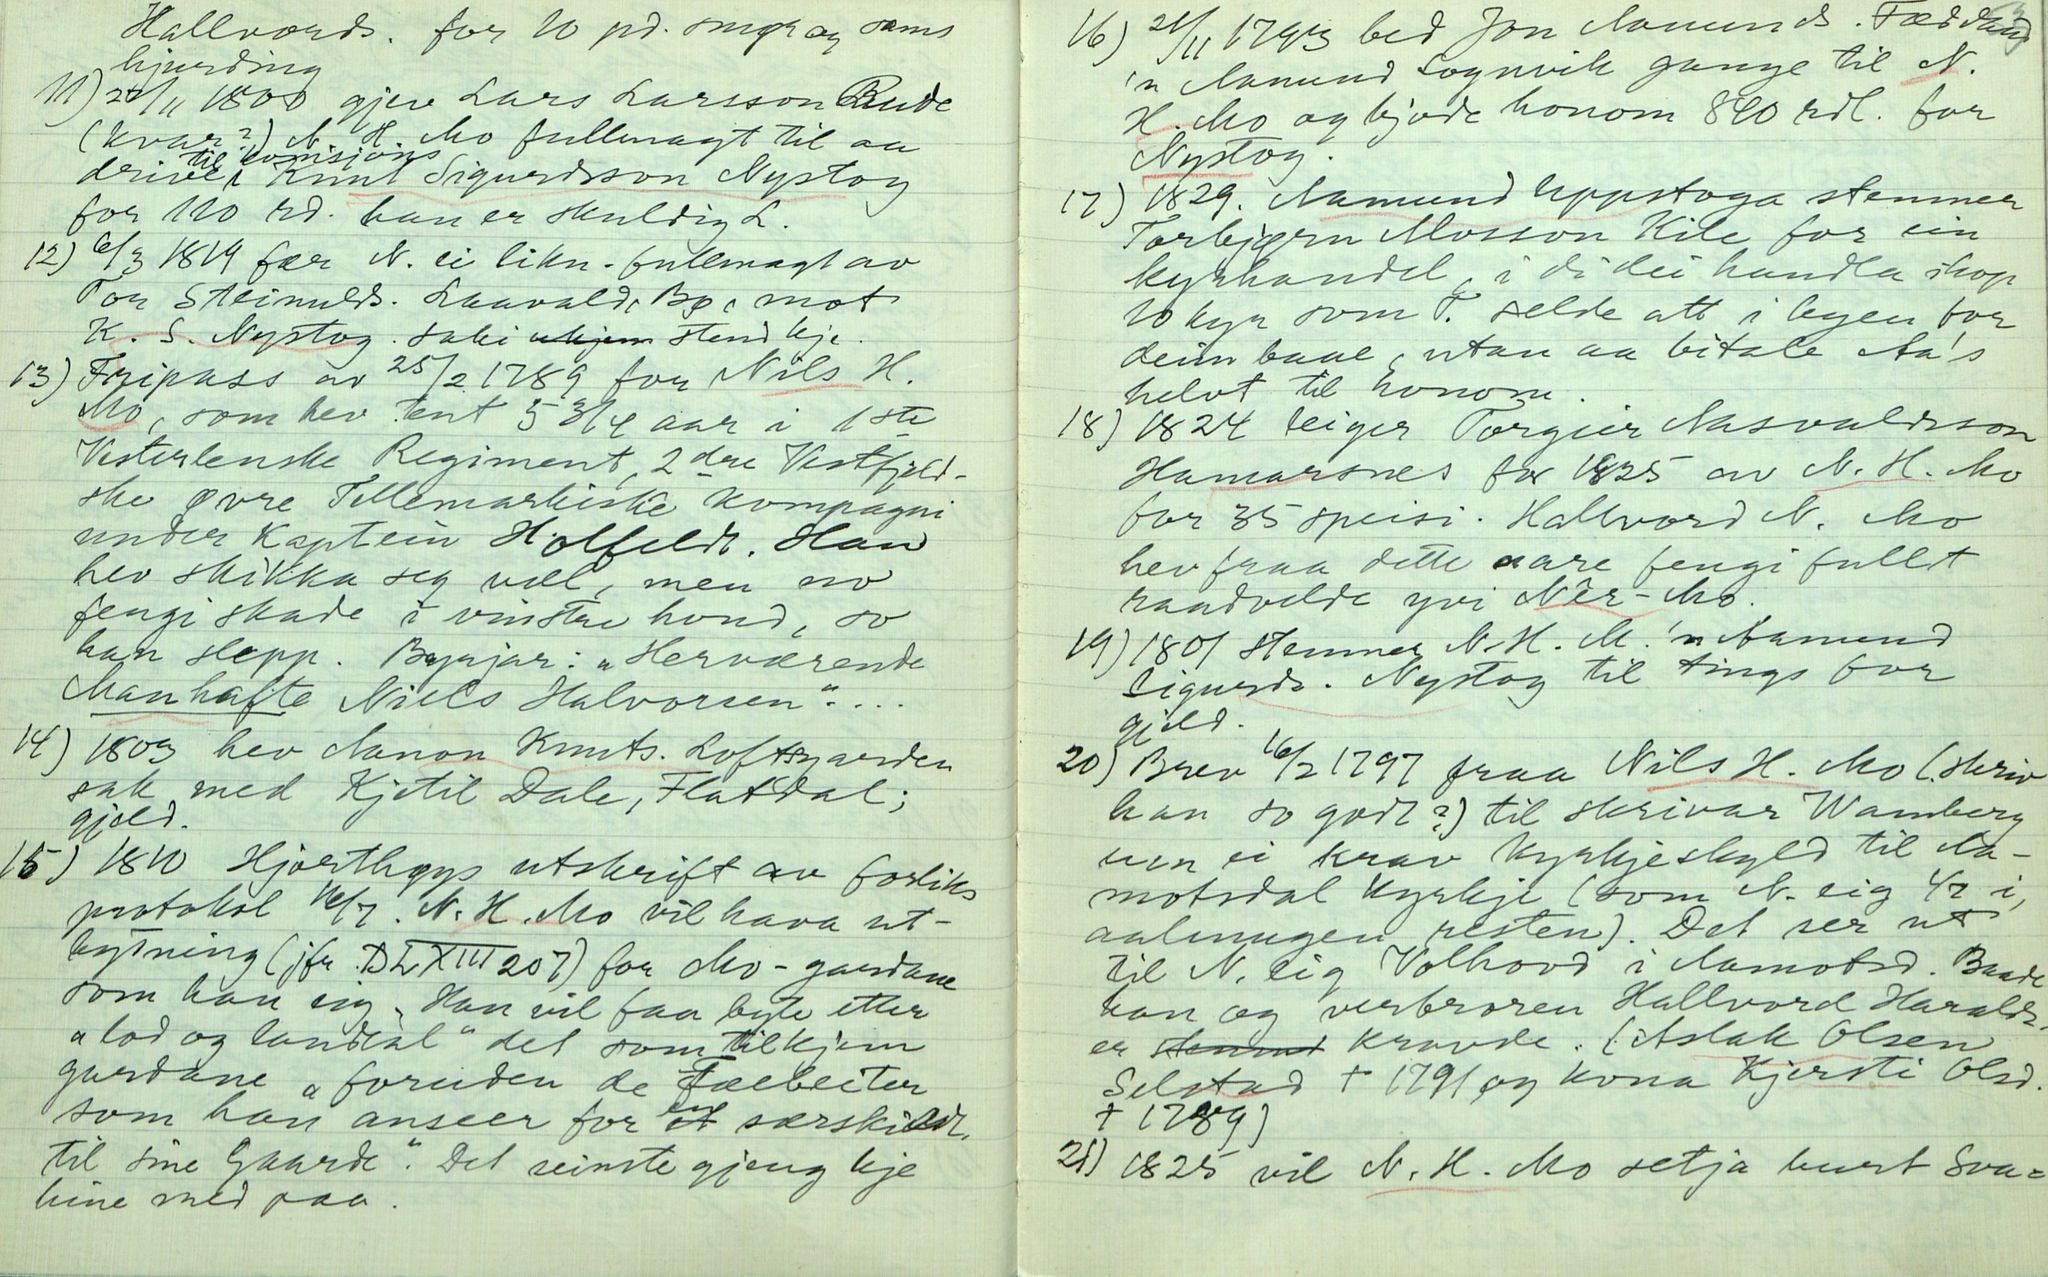 Hallvords. for 10 pd. smør og sams
hjurding
11) 21/11 1808 gjev Lars Larsson Bude
(kvar?) N. H. Mo fullmagt til aa
drive til komisjons Knut Sigurdsson Nystog
for 110 rd. han er skuldig L.
12) 6/3 1819 fær N. ei likn. fullmagt av
Tor Steinulds. Laavald, Bø, mot
K. S. Nystog. Saki stend kje.
13) Fripass av 25/2 1789 for Nils H.
Mo, som hev tent 5 3/4 aar i 1ste
Vesterlenske Regiment, 2dre Vestfjeld-
ske øvre Tellemarkiske Kompagni
under Kaptein Holfeldt. Han
hev skikka seg vel, men no
fengi skade i vinstre hond, so
han slepp. Byrjar: „Herværende
Manhafte Niels Halvorsen“....
14) 1803 hev Aanon Knuts. Loftsgarden
sak med Kjetil Dale, Flatdal;
gjeld.
15) 1810 Hjorthøys utskrift av forliks
protokol 16/7. N. H. Mo vil hava ut-
bytning (jfr. DL XIII 207) for Mo-gardane
som han eig. Han vil faa byte etter
„lod og landtal“ det som tilkjem
gardane „foruden de Fæebeiter
som han anseer for en særskildt.
til sine Gaarde“. Det seinste gjeng kje
hine med paa.
16) 21/11 1793 bed Jon Aamunds. Fladland
'n Aamund Sognvik gange til N.
H. Mo og bjode honom 840 rdl. for
Nystog.
17) 1829. Aamund Uppstoga stemner
Torbjørn Mosson Kile for ein
kyrhandel, i di dei handla ihop
10 kyr som T. selde att i byen for
deim baae, utan aa bitale Aa's
helvt til honom.
18) 1824 leiger Torgeir Aasvaldsson
Hamarsnes for 1825 av N. H. Mo
for 35 speisi. Hallvord N. Mo
hev fraa dette aare fengi fullt
raadvelde yvi Ner-Mo.
19) 1801 stemner N. H. M. 'n Aamund
Sigurds. Nystog til tings for
gjeld.
20) Brev 16/2 1797 fraa Nils H. Mo (skriv
han so godt?) til skrivar Wamberg
um ei krav kyrkjeskyld til Aa-
motsdal kyrkje (som N. eig 1/2 i,
aalmugen resten). Det ser ut
til N. eig Volhovd i Aamotsd. Baade
han og verbroren Hallvord Haralds.
er kravde. (Aslak Olsen
Selstad † 1791 og kona Kjersti Olsd.
† 1789)
21) 1825 vil N. H. Mo setja burt Sva=